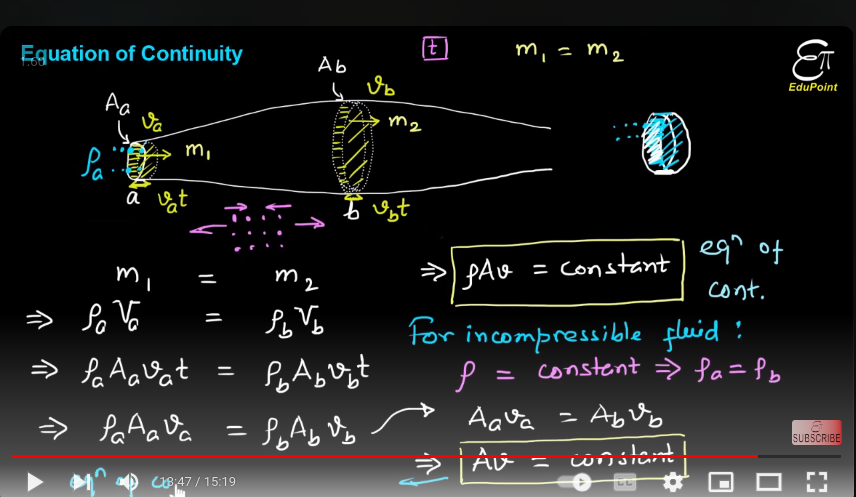 Equation of Continuity
1.60
t
m₁ = m₂
επ
EduPoint
A_b
v_b
A_a
v_a
m₂
m₁
ρ_a
a
v_a t
b
v_b t
m₁ = m₂
⇒ ρ_a V_a = ρ_b V_b
⇒ ρ_a A_a v_a t = ρ_b A_b v_b t
⇒ ρ_a A_a v_a = ρ_b A_b v_b
⇒ ρAv = constant
eqⁿ of
cont.
For incompressible fluid :
ρ = constant ⇒ ρ_a = ρ_b
A_a v_a = A_b v_b
⇒ Av = constant
SUBSCRIBE
eqⁿ of
13:47 / 15:19
CC